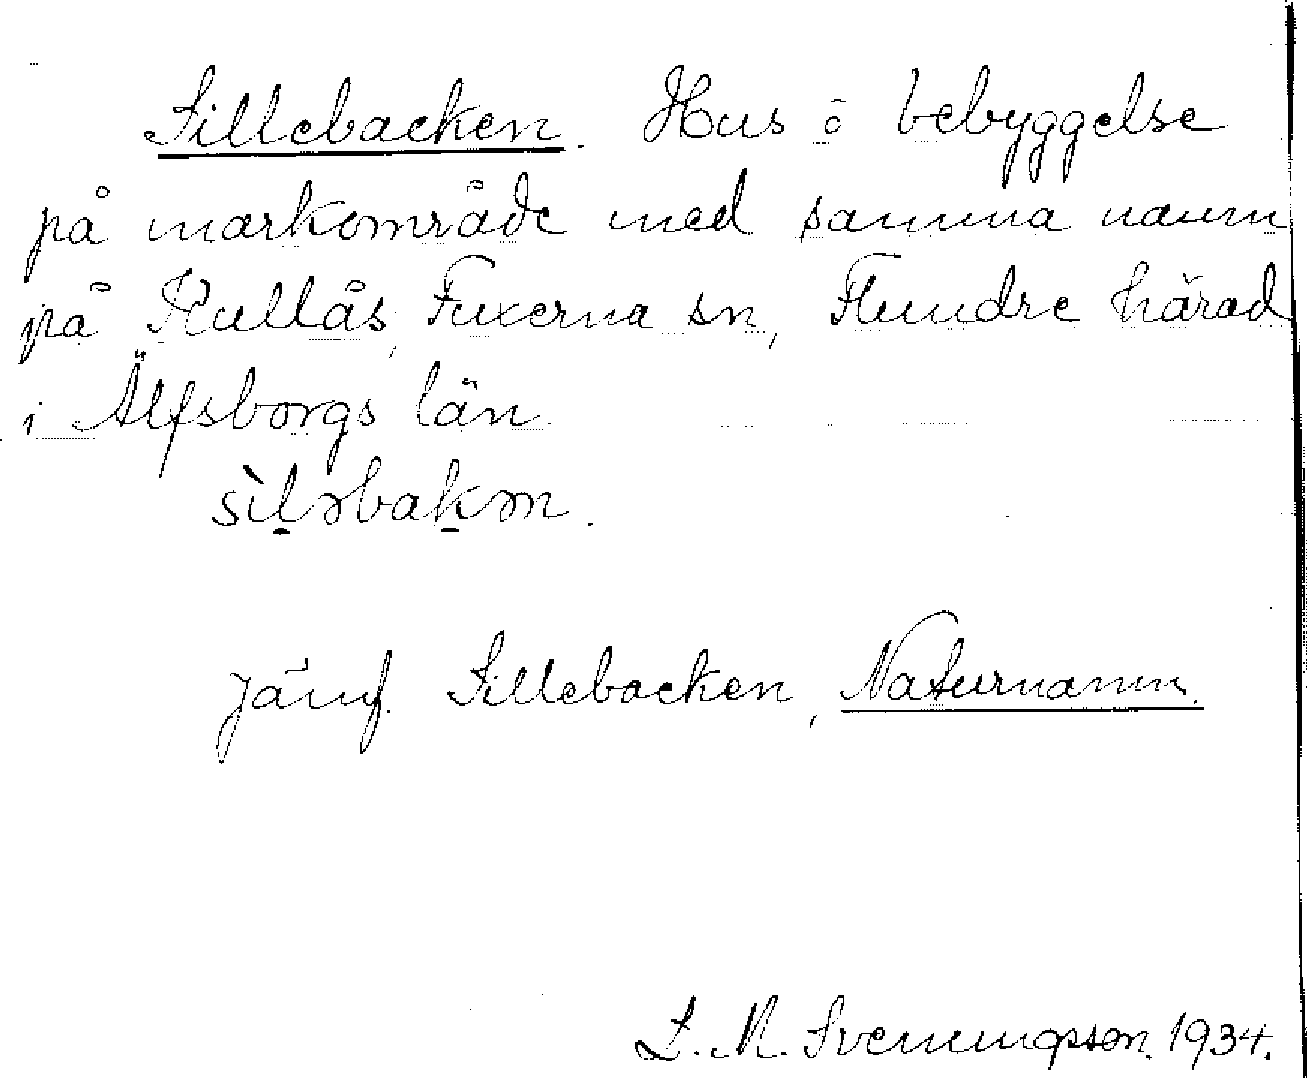 Sillebacken. Hus o bebyggelse
på markområde med samma namn
på Kullås, Fuxerna sn, Flundre härad
i Älfsborgs län.
sìləbakən.
Jämf. Sillebacken, Naturnamn.
L. M. Svenungsson. 1934.